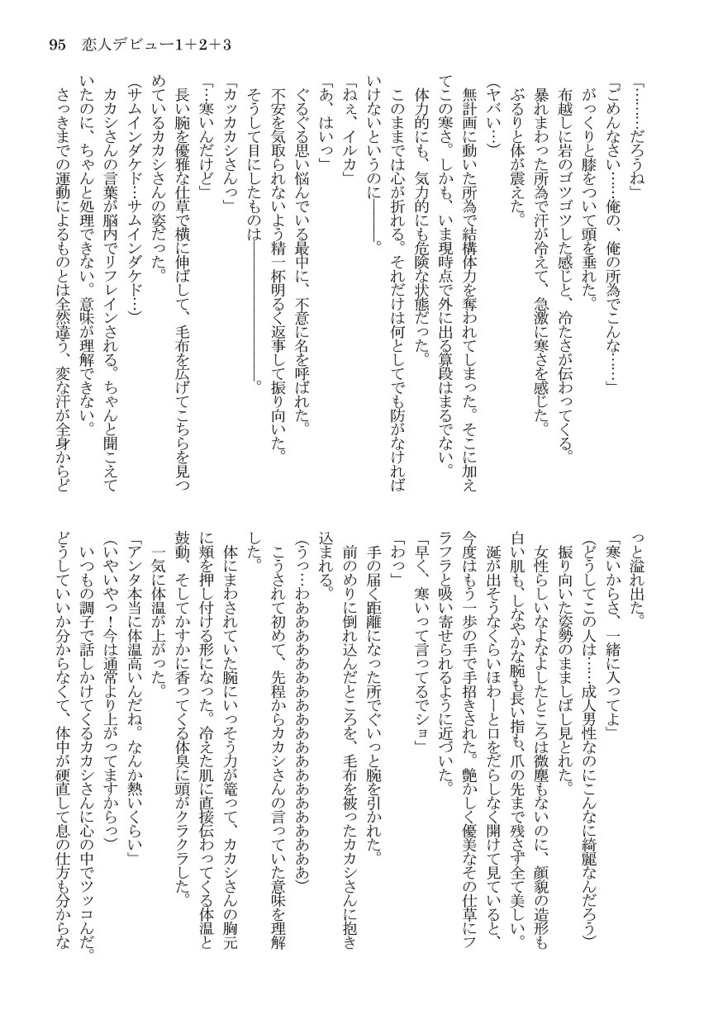 95　恋人デビュー1＋2＋3
「………だろうね」
「ごめんなさい……俺の、俺の所為でこんな……」
がっくりと膝をついて頭を垂れた。
布越しに岩のゴツゴツした感じと、冷たさが伝わってくる。
暴れまわった所為で汗が冷えて、急激に寒さを感じた。
ぶるりと体が震えた。
(ヤバい…)
無計画に動いた所為で結構体力を奪われてしまった。そこに加え
てこの寒さ。しかも、いま現時点で外に出る算段はまるでない。
体力的にも、気力的にも危険な状態だった。
このままでは心が折れる。それだけは何としてでも防がなければ
いけないというのに―――。
「ねぇ、イルカ」
「あ、はいっ」
ぐるぐる思い悩んでいる最中に、不意に名を呼ばれた。
不安を気取られないよう精一杯明るく返事して振り向いた。
そうして目にしたものは――――――――――。
「カッカカシさんっ」
「…寒いんだけど」
長い腕を優雅な仕草で横に伸ばして、毛布を広げてこちらを見つ
めているカカシさんの姿だった。
(サムインダケド…サムインダケド…)
カカシさんの言葉が脳内でリフレインされる。ちゃんと聞こえて
いたのに、ちゃんと処理できない。意味が理解できない。
さっきまでの運動によるものとは全然違う、変な汗が全身からど
っと溢れ出た。
「寒いからさ、一緒に入ってよ」
(どうしてこの人は……成人男性なのにこんなに綺麗なんだろう)
振り向いた姿勢のまましばし見とれた。
女性らしいなよなよしたところは微塵もないのに、顔貌の造形も
白い肌も、しなやかな腕も長い指も、爪の先まで残さず全て美しい。
涎が出そうなくらいほわーと口をだらしなく開けて見ていると、
今度はもう一歩の手で手招きされた。艶かしく優美なその仕草にフ
ラフラと吸い寄せられるように近づいた。
「早く、寒いって言ってるでショ」
「わっ」
手の届く距離になった所でぐいっと腕を引かれた。
前のめりに倒れ込んだところを、毛布を被ったカカシさんに抱き
込まれる。
(うっ…わあああああああああああああああああああああああ)
こうされて初めて、先程からカカシさんの言っていた意味を理解
した。
体にまわされていた腕にいっそう力が篭って、カカシさんの胸元
に頬を押し付ける形になった。冷えた肌に直接伝わってくる体温と
鼓動、そしてかすかに香ってくる体臭に頭がクラクラした。
一気に体温が上がった。
「アンタ本当に体温高いんだね。なんか熱いくらい」
(いやいやっ！今は通常より上がってますからっ)
いつもの調子で話しかけてくるカカシさんに心の中でツッコんだ。
どうしていいか分からなくて、体中が硬直して息の仕方も分からな